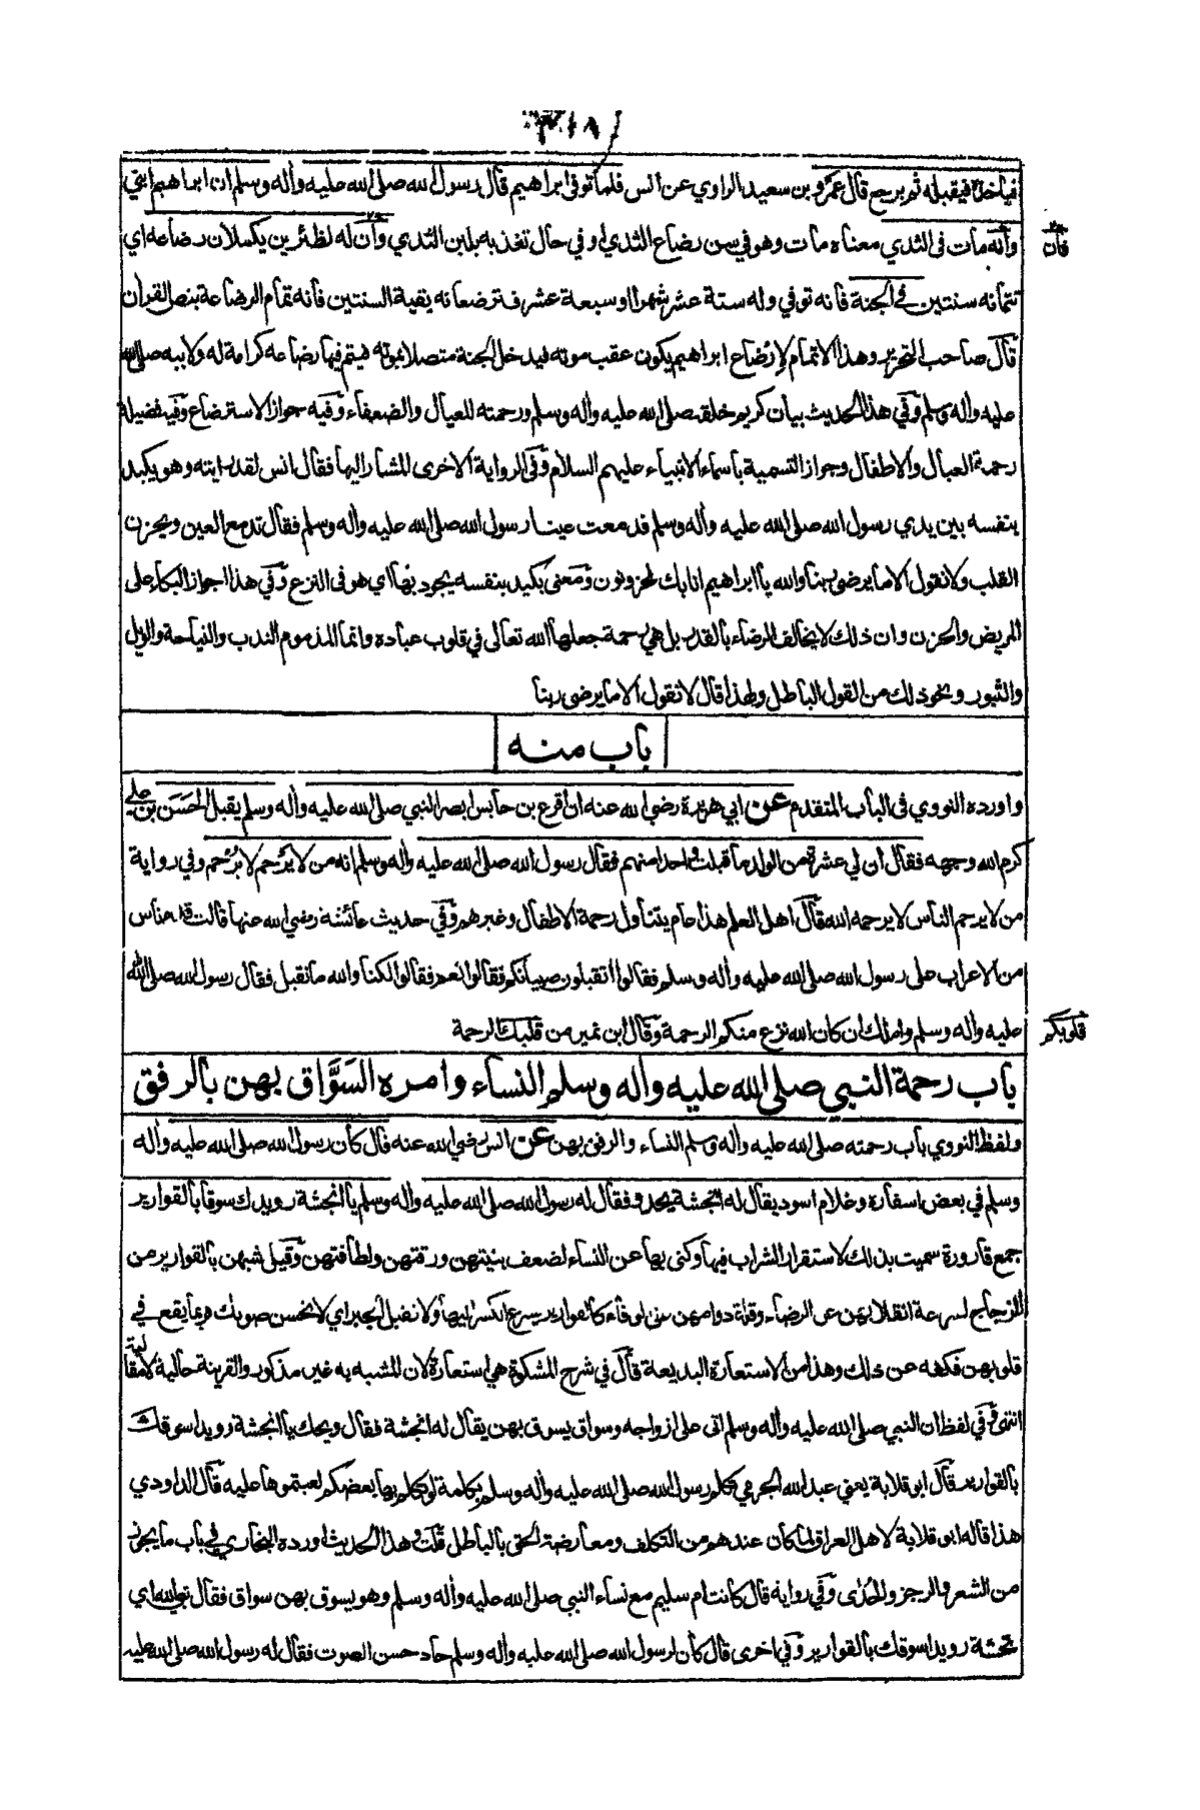 ٣١٨
فياخذه فيقبله ثم يرجع قال عمرو بن سعيد الراوي عن انس فلما توفي ابراهيم قال رسول الله صلى الله عليه وأله وسلم ان ابراهيم ابني
وأنه مات في الثدي معناه مات وهو في سن رضاع الثدي او في حال تغذيه بلبن الثدي وأن له لظئرين يكملان رضاعه اي
فان
تتمانه سنتين في الجنة فانه توفي وله ستة عشر شهرا او سبعة عشر فترضعانه بقية السنتين فانه تمام الرضاعة بنص القران
قال صاحب التحرير وهذا الاتمام لإرضاع ابراهيم يكون عقب موته فيدخل الجنة متصلا بموته فيتم فيها رضاعه كرامة له ولابيه صلى الله
عليه واله وسلم وفي هذا الحديث بيان كريم خلقه صلى الله عليه وأله وسلم ورحمته للعيال والضعفاء وفيه جواز الاسترضاع وفيه فضيلة
رحمة العيال والاطفال وجواز التسمية باسماء الانبياء عليهم السلام وفي الرواية الاخرى المشار اليها فقال انس لقد رايته وهو يكيد
بنفسه بين يدي رسول الله صلى الله عليه وأله وسلم فدمعت عينا رسول الله صلى الله عليه واله وسلم فقال تدمع العين ويحزن
القلب ولا نقول الا ما يرضى ربنا والله يا ابراهيم انا بك لمحزونون ومعنى يكيد بنفسه يجود بها اي هو في النزع وفي هذا جواز البكاء على
المريض والحزن وان ذلك لا يخالف الرضاء بالقدر بل هي رحمة جعلها الله تعالى في قلوب عباده وانما المذموم الندب والنياحة والويل
والثبور ونحو ذلك من القول الباطل ولهذا قال لا نقول الا ما يرضى ربنا
باب منه
واورده النووي في الباب المتقدم عن ابي هريرة رضي الله عنه ان اقرع بن حابس ابصر النبي صلى الله عليه وأله وسلم يقبل الحسن بن علي
كرم الله وجهه فقال ان لي عشرة من الولد ما قبلت واحدا منهم فقال رسول الله صلى الله عليه وأله وسلم انه من لا يرحم لا يرحم وفي رواية
من لا يرحم الناس لا يرحمه الله قال اهل العلم هذا عام يتناول رحمة الاطفال وغيرهم وفي حديث عائشة رضي الله عنها قالت قدم ناس
من الاعراب على رسول الله صلى الله عليه وأله وسلم فقالوا أتقبلون صبيانكم فقالوا نعم فقالوا لكنا والله ما نقبل فقال رسول الله صلى الله
عليه وأله وسلم واملك ان كان الله نزع منكم الرحمة وقال ابن نمير من قلبك الرحمة
قلوبكم
باب رحمة النبي صلى الله عليه وأله وسلم النساء وامره السواق بهن بالرفق
ولفظ النووي باب رحمته صلى الله عليه وأله وسلم النساء والرفق بهن عن انس رضي الله عنه قال كان رسول الله صلى الله عليه وأله
وسلم في بعض اسفاره وغلام اسود يقال له انجشة يحدو فقال له رسول الله صلى الله عليه وأله وسلم يا انجشة رويدك سوقا بالقوارير
جمع قارورة سميت بذلك لاستقرار الشراب فيها وكنى بها عن النساء لضعف بنيتهن ورقتهن ولطافتهن وقيل شبهن بالقوارير من
الزجاج لسرعة انقلابهن عن الرضاء وقلة دوامهن على الوفاء كالقوارير يسرع الكسر اليها ولا تقبل الجبر اي لا تحسن صوتك فربما يقع في
قلوبهن فكفه عن ذلك وهذا من الاستعارة البديعة قال في شرح المشكوة هي استعارة لان المشبه به غير مذكور والقرينة حالية لا مقالية
انتهى وفي لفظ ان النبي صلى الله عليه وأله وسلم اتى على ازواجه وسواق يسوق بهن يقال له انجشة فقال ويحك يا انجشة رويدا سوقك
بالقوارير قال ابو قلابة يعني عبد الله الجرمي تكلم رسول الله صلى الله عليه وأله وسلم بكلمة لو تكلم بها بعضكم لعبتموها عليه قال الداودي
هذا قاله ابو قلابة لاهل العراق لما كان عندهم من التكلف ومعارضة الحق بالباطل قلت وهذا الحديث اورده البخاري في باب ما يجوز
من الشعر والرجز والحداء وفي رواية قال كانت ام سليم مع نساء النبي صلى الله عليه واله وسلم وهو يسوق بهن سواق فقال نبي الله اي
نجشة رويدا سوقك بالقوارير وفي اخرى قال كان لرسول الله صلى الله عليه وأله وسلم حاد حسن الصوت فقال له رسول الله صلى الله عليه